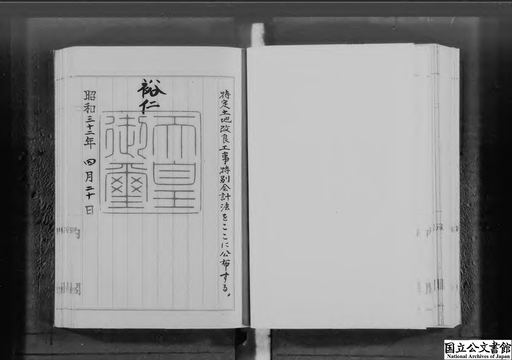 特定土地改良工事特別会計法をここに公布する。
裕仁
天皇
御璽
昭和三十二年四月二十日
国立公文書館
National Archives of Japan